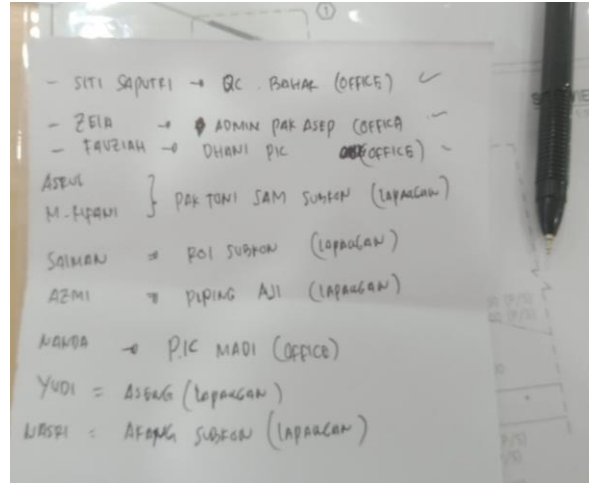 - SITI SAPUTRI → QC BAHAR (OFFICE) ✓
- ZELA → ADMIN PAK ASEP (OFFICE)
- FAUZIAH → DHANI PIC (OFFICE)
ASRUL
M. RIFANI } PAK TONI SAM SUBKON (LAPANGAN)
SALMAN = ROI SUBKON (LAPANGAN)
AZMI = PIPING AJI (LAPANGAN)
NANDA → P.IC MADI (OFFICE)
YUDI = ASENG (LAPANGAN)
NASRI = SUBKON (LAPANGAN)